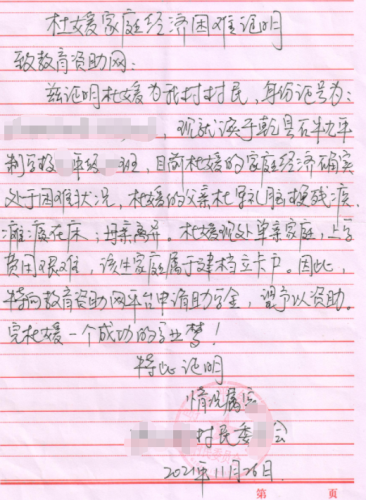 杜媛家庭经济困难证明
致教育资助网:
兹证明杜媛为我村村民,身份证号为:
,现就读于乾县石牛九年
制学校 年级 班,目前杜媛的家庭经济确实
处于困难状况,杜媛的父亲杜军礼脑梗残疾,
瘫痪在床;母亲离异。杜媛现处单亲家庭,上学
费困艰难,该生家庭属于建档立卡户。因此,
特向教育资助网平台申请助学金,望予以资助。
完杜媛一个成功的学业梦!
特此证明
情况属实
村民委 会
2021年11月26日
第 页